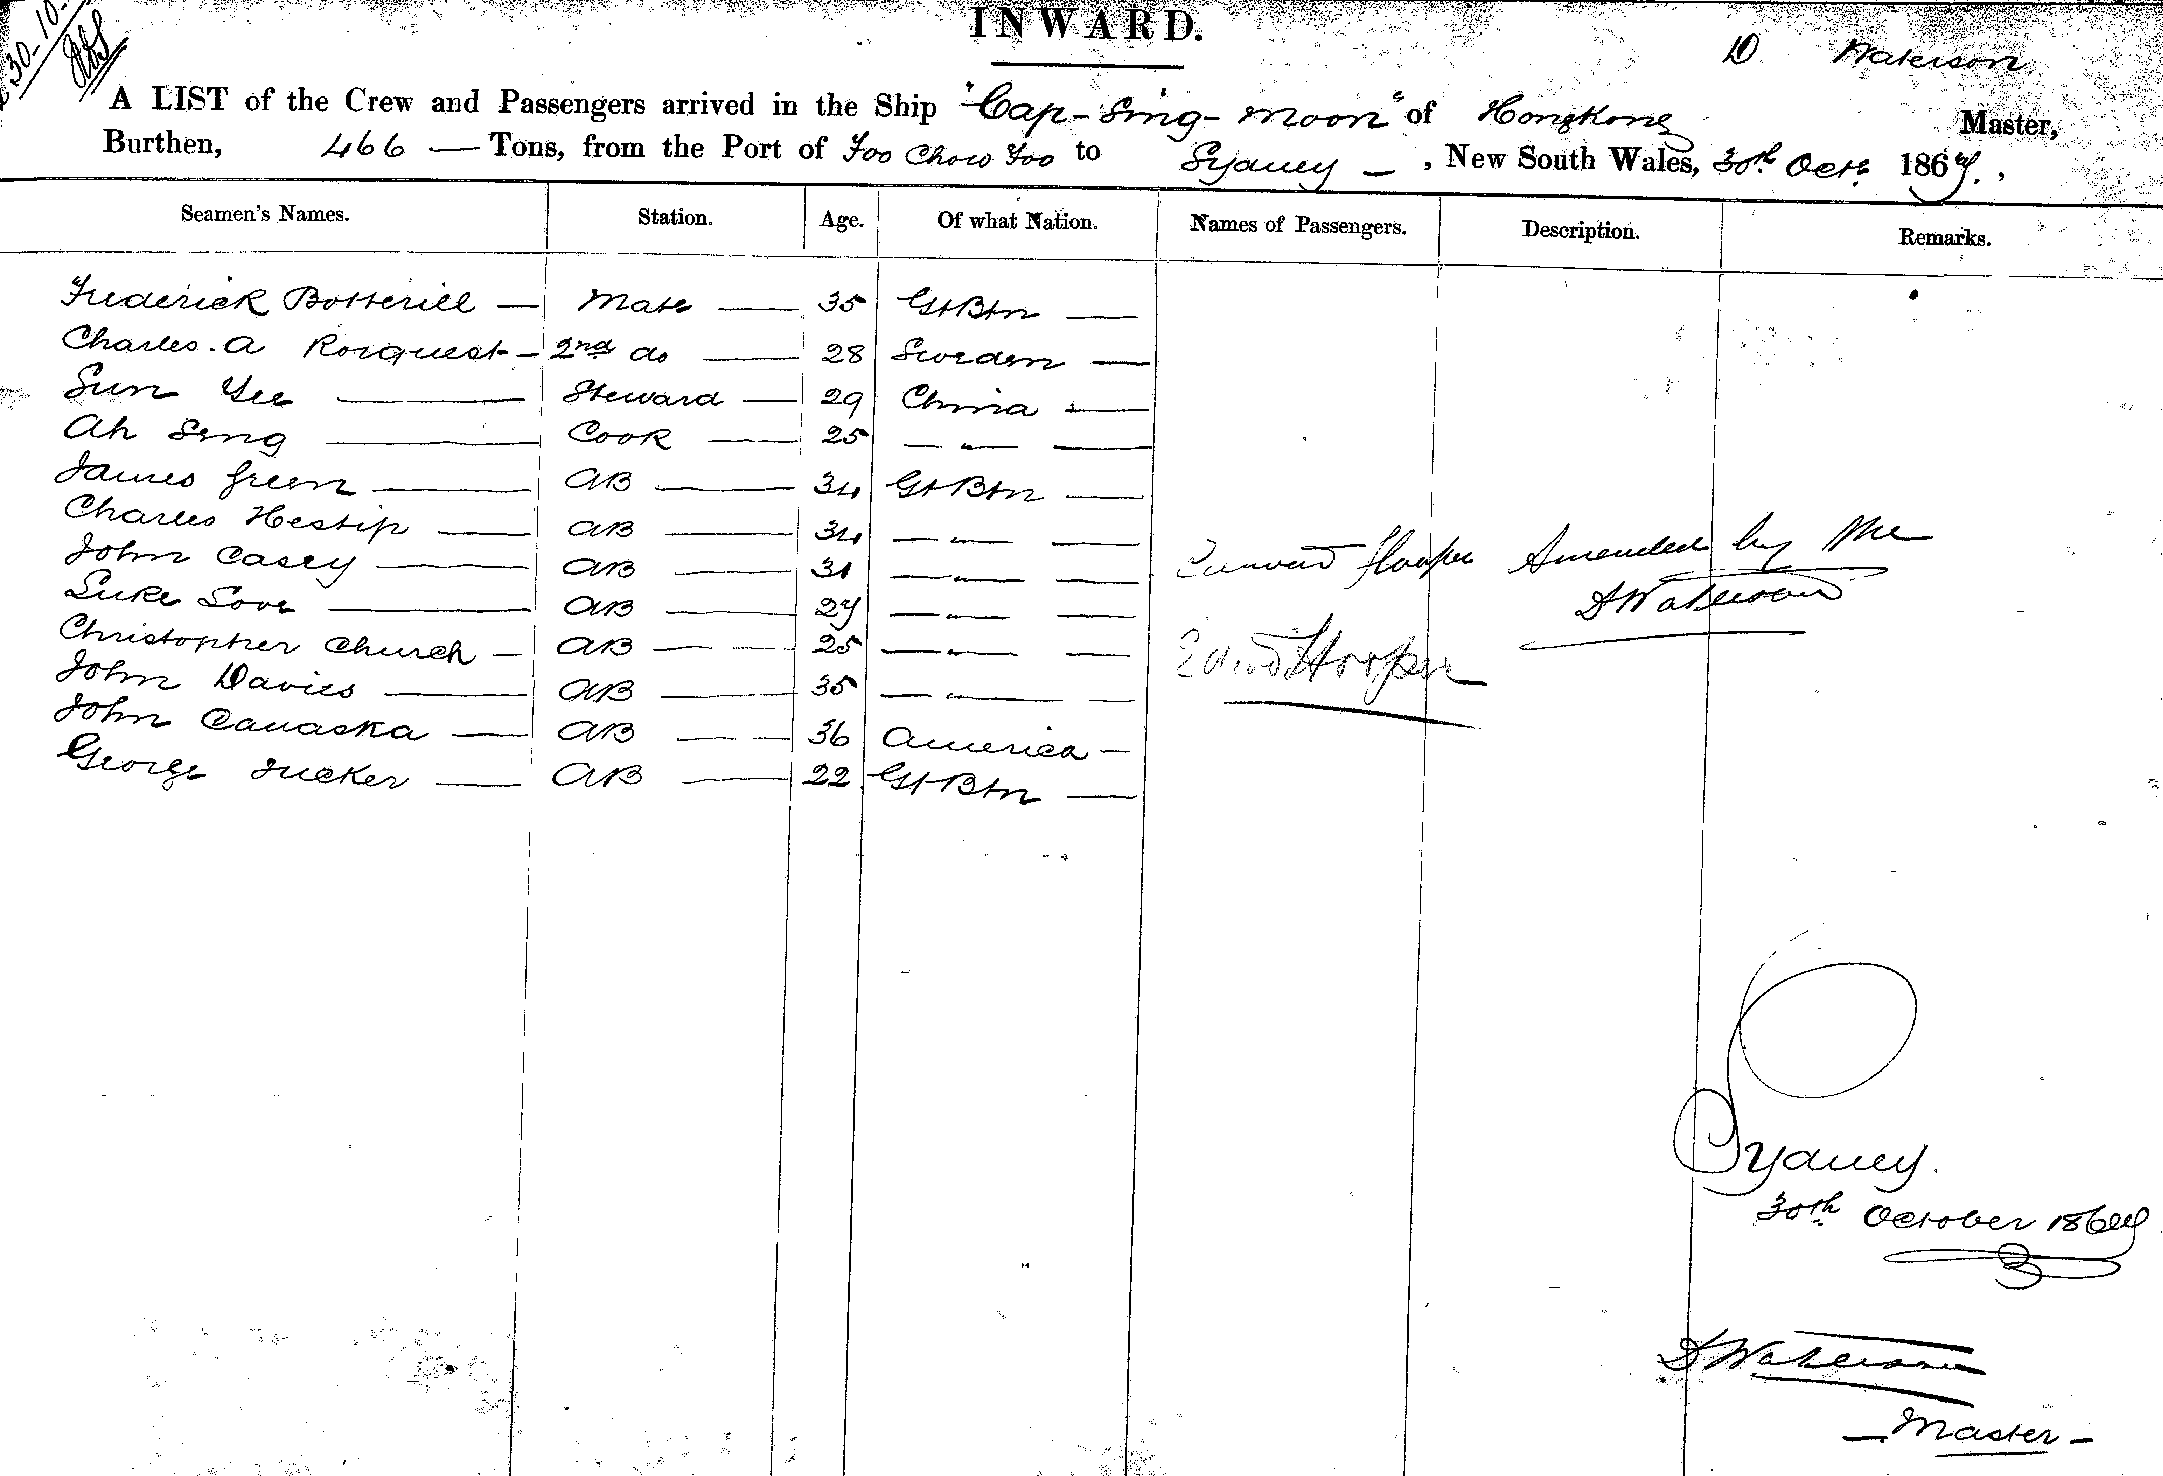 30-10-
INWARD.
D Waterson
A LIST of the Crew and Passengers arrived in the Ship "Cap-Sing-Moon" of Hongkong Master,
Burthen, 466 — Tons, from the Port of Foo Chow Foo to Sydney —, New South Wales, 30th Octr. 1867.
Seamen's Names. Station. Age. Of what Nation. Names of Passengers. Description. Remarks.
Frederick Botterill — Mate — 35 Gt Btn —
Charles. A Rorquest — 2nd do — 28 Sweden —
Sun Yee — Steward — 29 China —
Ah Sing — Cook — 25 — " —
James Green — AB — 34 Gt Btn —
Charles Hestip — AB — 34 — " —
John Casey — AB — 31 — " — Edward Hooper Amended by Me
Luke Love — AB — 27 — " — D Waterson
Christopher Church — AB — 25 — " — Edwd Hooper
John Davies — AB — 35 — " —
John Canaska — AB — 36 America —
George Tucker — AB — 22 Gt Btn —
Sydney.
30th October 1867
D Waterson
— Master —